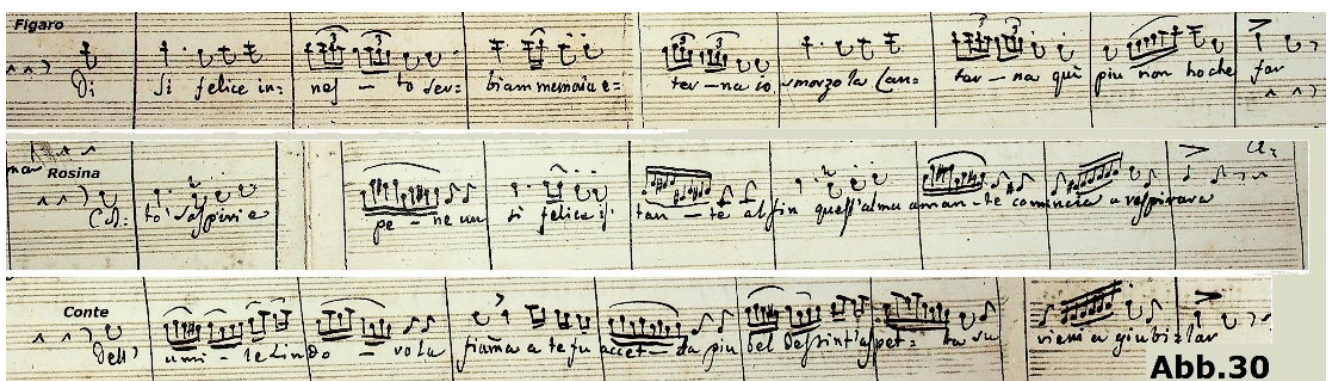 Figaro
Di si felice in= nes - to ser= biam memoria e= ter - na io smorzo la lan= ter - na quì piu non ho che far
Rosina
Cos: to' sospiri e pe - ne un si felice is: tan - te al fin quest'alma aman - te comincia a respirare
Conte
Dell' umi - le Lindo - ro la fiama a te fu accet - ta piu bel destin t'aspet: ta su vieni a giubilar
Abb.30